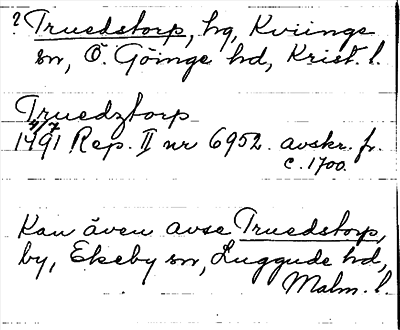 ? Truedstorp, hg, Kviinge
sn, Ö. Göinge hd, Krist. l.
Truedztorp
7/7
1491 Rep. II nr 6952. avskr. fr.
c. 1700.
Kan även avse Truedstorp,
by, Ekeby sn, Luggude hd,
Malm. l.